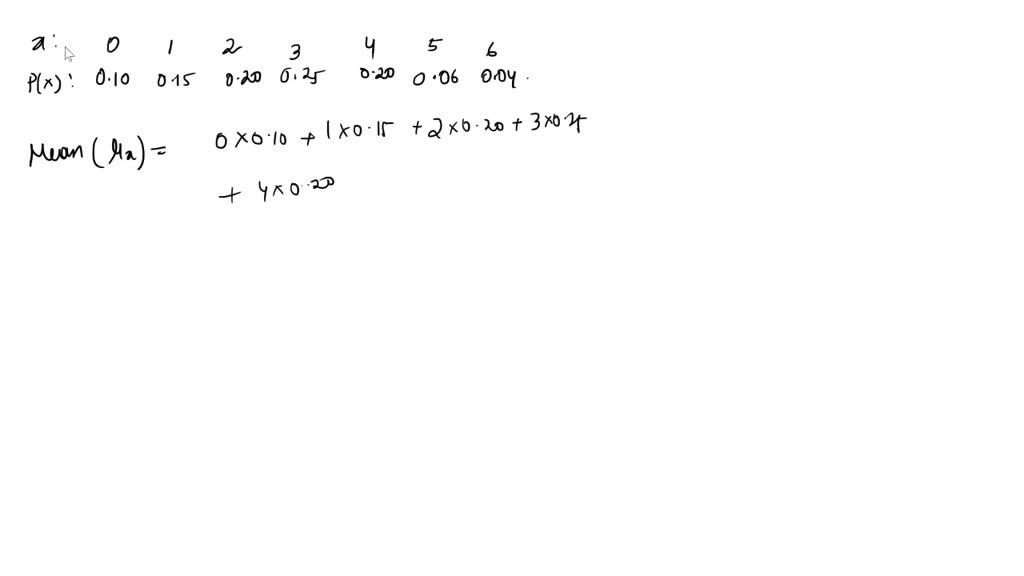 x: 0 1 2 3 4 5 6
P(x): 0.10 0.15 0.20 0.25 0.20 0.06 0.04.
Mean (μx) = 0×0.10 + 1×0.15 + 2×0.20 + 3×0.25
+ 4×0.20